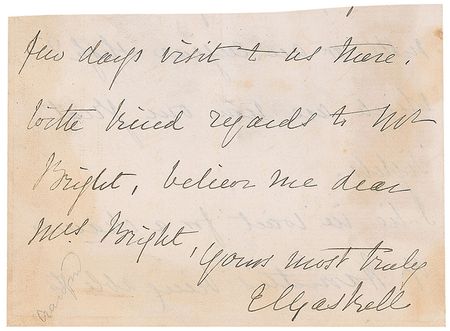 few days visit to us there.
With kind regards to Mr
Bright, believe me dear
Mrs. Bright, yours most truly
E C Gaskell